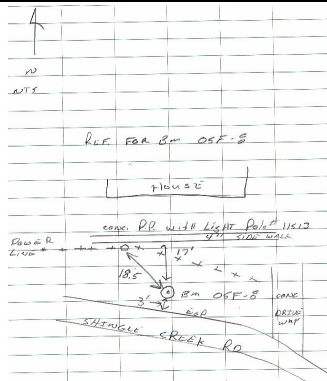 N
NTS
REF FOR BM OSF-8
HOUSE
CONC. PP WITH LIGHT Pole#
4' SIDE WALK
POWER
LINE
17'
18.5'
BM OSF-8
CONC
3'
DRIVE
WAY
EOP
SHINGLE CREEK RD